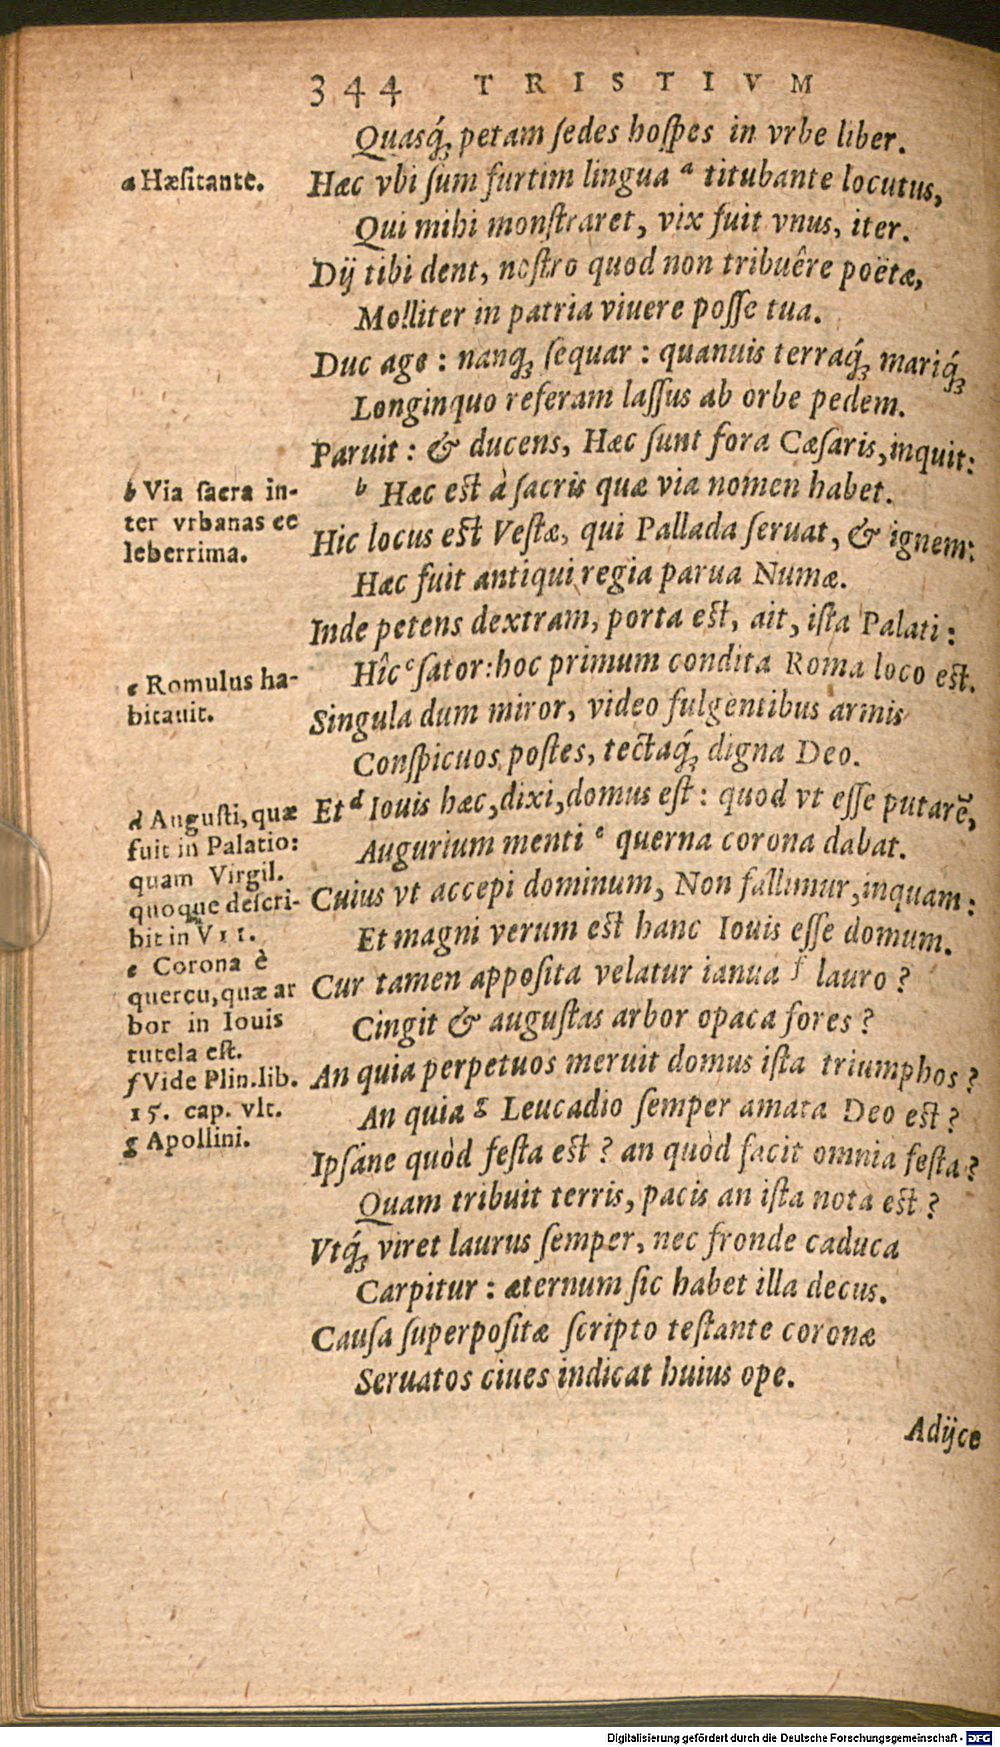 344 TRISTIVM
Quasq́; petam ſedes hoſpes in vrbe liber.
a Hæſitante.
Hæc vbi ſum furtim lingua a titubante locutus,
Qui mihi monſtraret, vix fuit vnus, iter.
Dij tibi dent, noſtro quod non tribuêre poëtæ,
Molliter in patria viuere poſſe tua.
Duc age : nanq; ſequar : quanuis terraq́; mariq́;
Longinquo referam laſſus ab orbe pedem.
Paruit : & ducens, Hæc ſunt fora Cæſaris, inquit:
b Via ſacra in-
ter vrbanas ce
leberrima.
b Hæc eſt à ſacris quæ via nomen habet.
Hic locus eſt Veſtæ, qui Pallada ſeruat, & ignem:
Hæc fuit antiqui regia parua Numæ.
Inde petens dextram, porta eſt, ait, iſta Palati :
c Romulus ha-
bitauit.
Hîc c ſator: hoc primum condita Roma loco eſt.
Singula dum miror, video fulgentibus armis
Conſpicuos poſtes, tectaq́; digna Deo.
d Auguſti, quæ
fuit in Palatio:
quam Virgil.
quoque deſcri-
bit in VII.
e Corona è
quercu, quæ ar
bor in Iouis
tutela eſt.
f Vide Plin. lib.
15. cap. vlt.
g Apollini.
Et d Iouis hæc, dixi, domus eſt : quod vt eſſe putarẽ,
Augurium menti e querna corona dabat.
Cuius vt accepi dominum, Non fallimur, inquam :
Et magni verum eſt hanc Iouis eſſe domum.
Cur tamen appoſita velatur ianua f lauro ?
Cingit & auguſtas arbor opaca fores ?
An quia perpetuos meruit domus iſta triumphos ?
An quia g Leucadio ſemper amata Deo eſt ?
Ipſáne quòd feſta eſt ? an quòd facit omnia feſta ?
Quam tribuit terris, pacis an iſta nota eſt ?
Vtq́; viret laurus ſemper, nec fronde caduca
Carpitur : æternum ſic habet illa decus.
Cauſa ſuperpoſitæ ſcripto teſtante coronæ
Seruatos ciues indicat huius ope.
Adijce
Digitalisierung gefördert durch die Deutsche Forschungsgemeinschaft - DFG